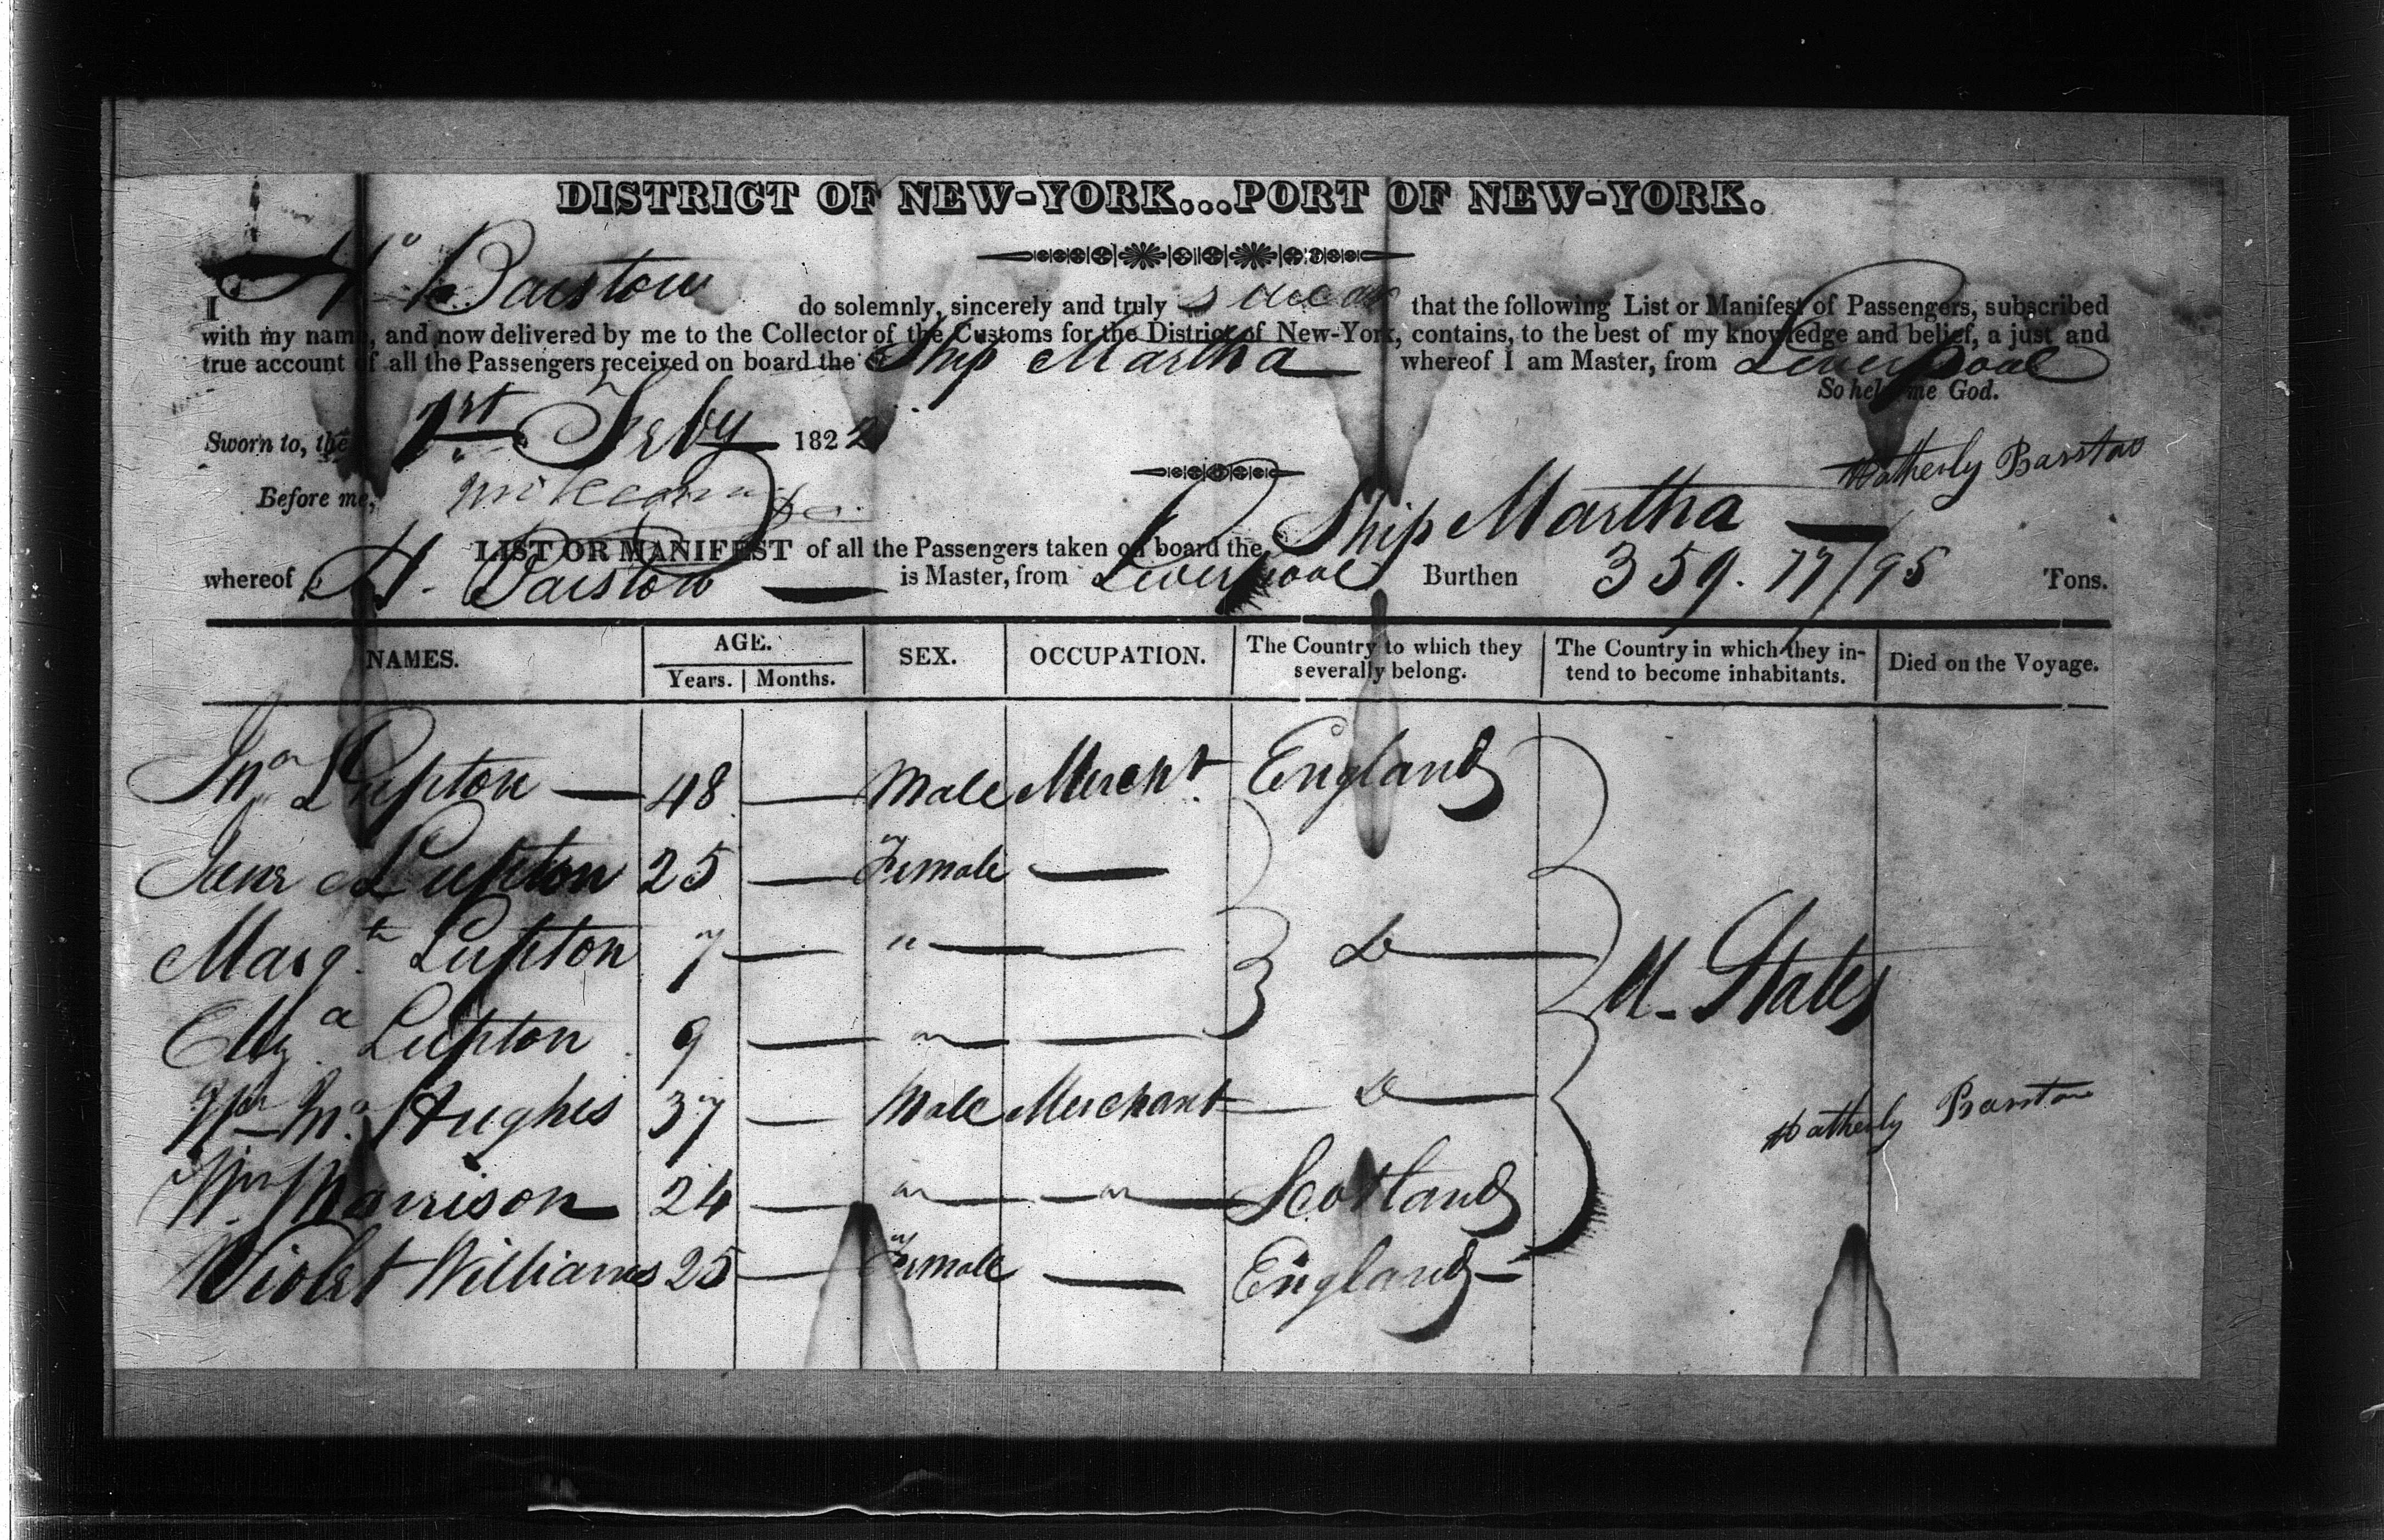 DISTRICT OF NEW-YORK...PORT OF NEW-YORK.
I H Barstow do solemnly, sincerely and truly swear that the following List or Manifest of Passengers, subscribed
with my name, and now delivered by me to the Collector of the Customs for the District of New-York, contains, to the best of my knowledge and belief, a just and
true account of all the Passengers received on board the Ship Martha whereof I am Master, from Liverpool
So help me God.
Sworn to, the 1st Feby 1822
Hatherly Barstow
Before me,
LIST OR MANIFEST of all the Passengers taken on board the Ship Martha
whereof H. Barstow is Master, from Liverpool Burthen 359. 77/95 Tons.
NAMES. AGE. Years. Months. SEX. OCCUPATION. The Country to which they severally belong. The Country in which they intend to become inhabitants. Died on the Voyage.
Jno Lupton 48 Male Mercht. England
Jane Lupton 25 Female
Margt. Lupton 7 " Do
U. States
Eliza Lupton 9 "
Wm Hughes 37 Male Merchant Do
Hatherly Barstow
Wm Morrison 24 " " Scotland
Violet Williams 25 Female England